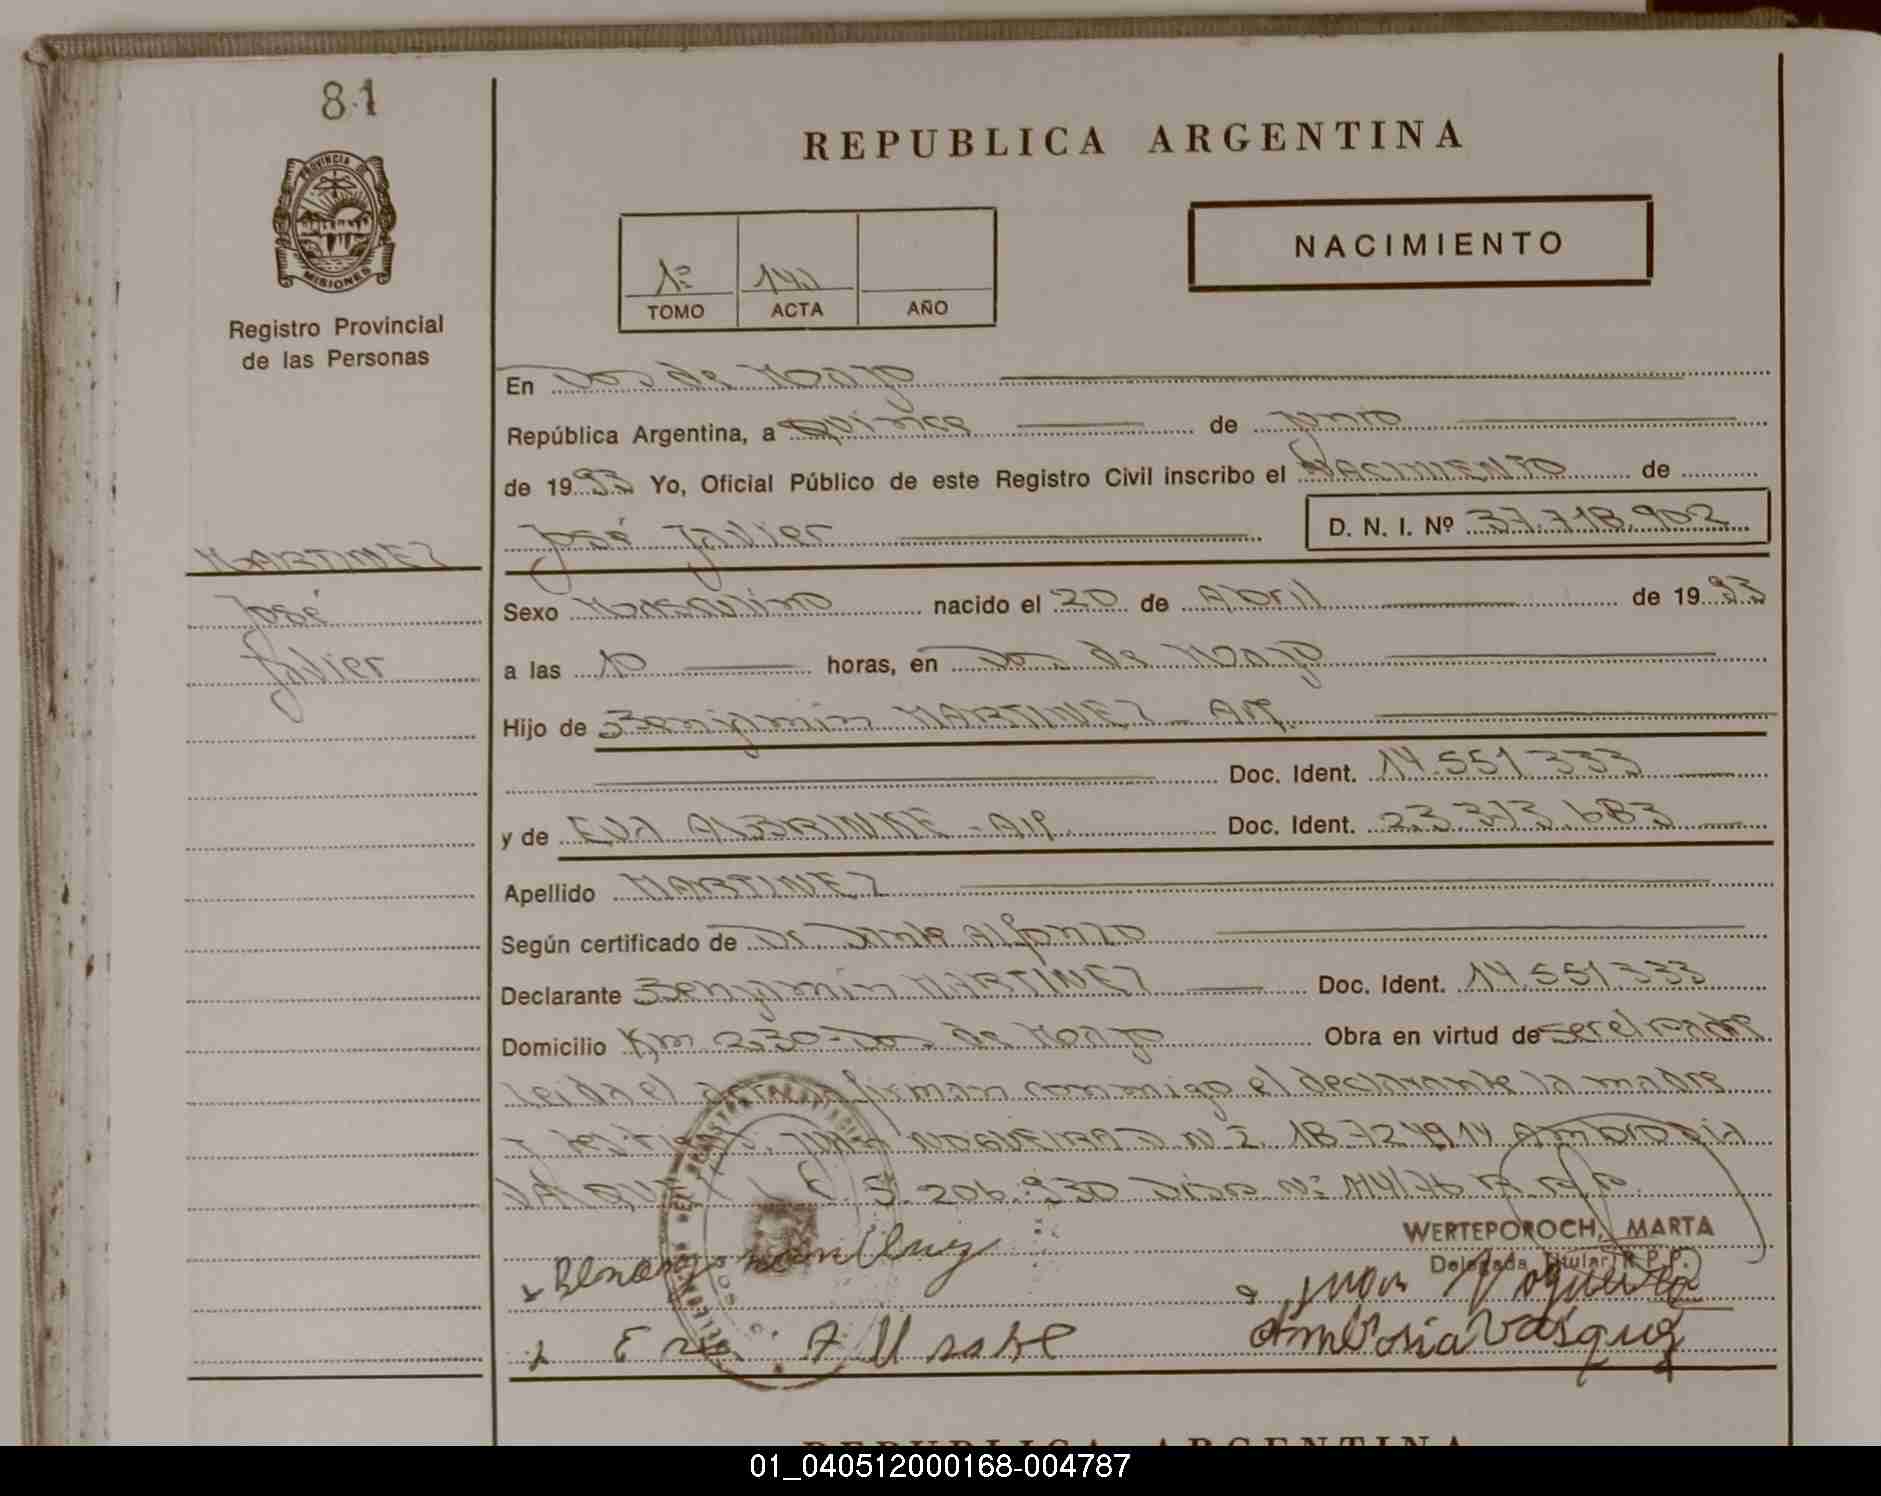 81
PROVINCIA DE
MISIONES
Registro Provincial
de las Personas
MARTINEZ
José
Javier
REPUBLICA ARGENTINA
1º
TOMO ACTA AÑO
NACIMIENTO
En Dos de Mayo
República Argentina, a Quince de Junio
de 1993 Yo, Oficial Público de este Registro Civil inscribo el NACIMIENTO de
José Javier D. N. I. Nº 37.718.902
Sexo Masculino nacido el 20 de Abril de 1993
a las 10 horas, en Dos de Mayo
Hijo de Benjamín MARTINEZ - Arg.
Doc. Ident. 14.551.333
y de Eva Doc. Ident. 23.373.683
Apellido MARTINEZ
Según certificado de Dr Dante Alfonzo
Declarante Benjamín MARTINEZ Doc. Ident. 14.551.333
Domicilio Km 230 - Dos de Mayo Obra en virtud de ser el padre
Leida el acta firman conmigo el declarante la madre
y testigos Juan NOGUEIRA D N I 18.724914 Ambrosia
5.206.930 Disp. Nº 114/76 R.P.P.
WERTEPOROCH, MARTA
Delegada Titular R.P.P.
Juan Nogueira
Ambrosia Vasquez
REPUBLICA ARGENTINA
01_040512000168-004787